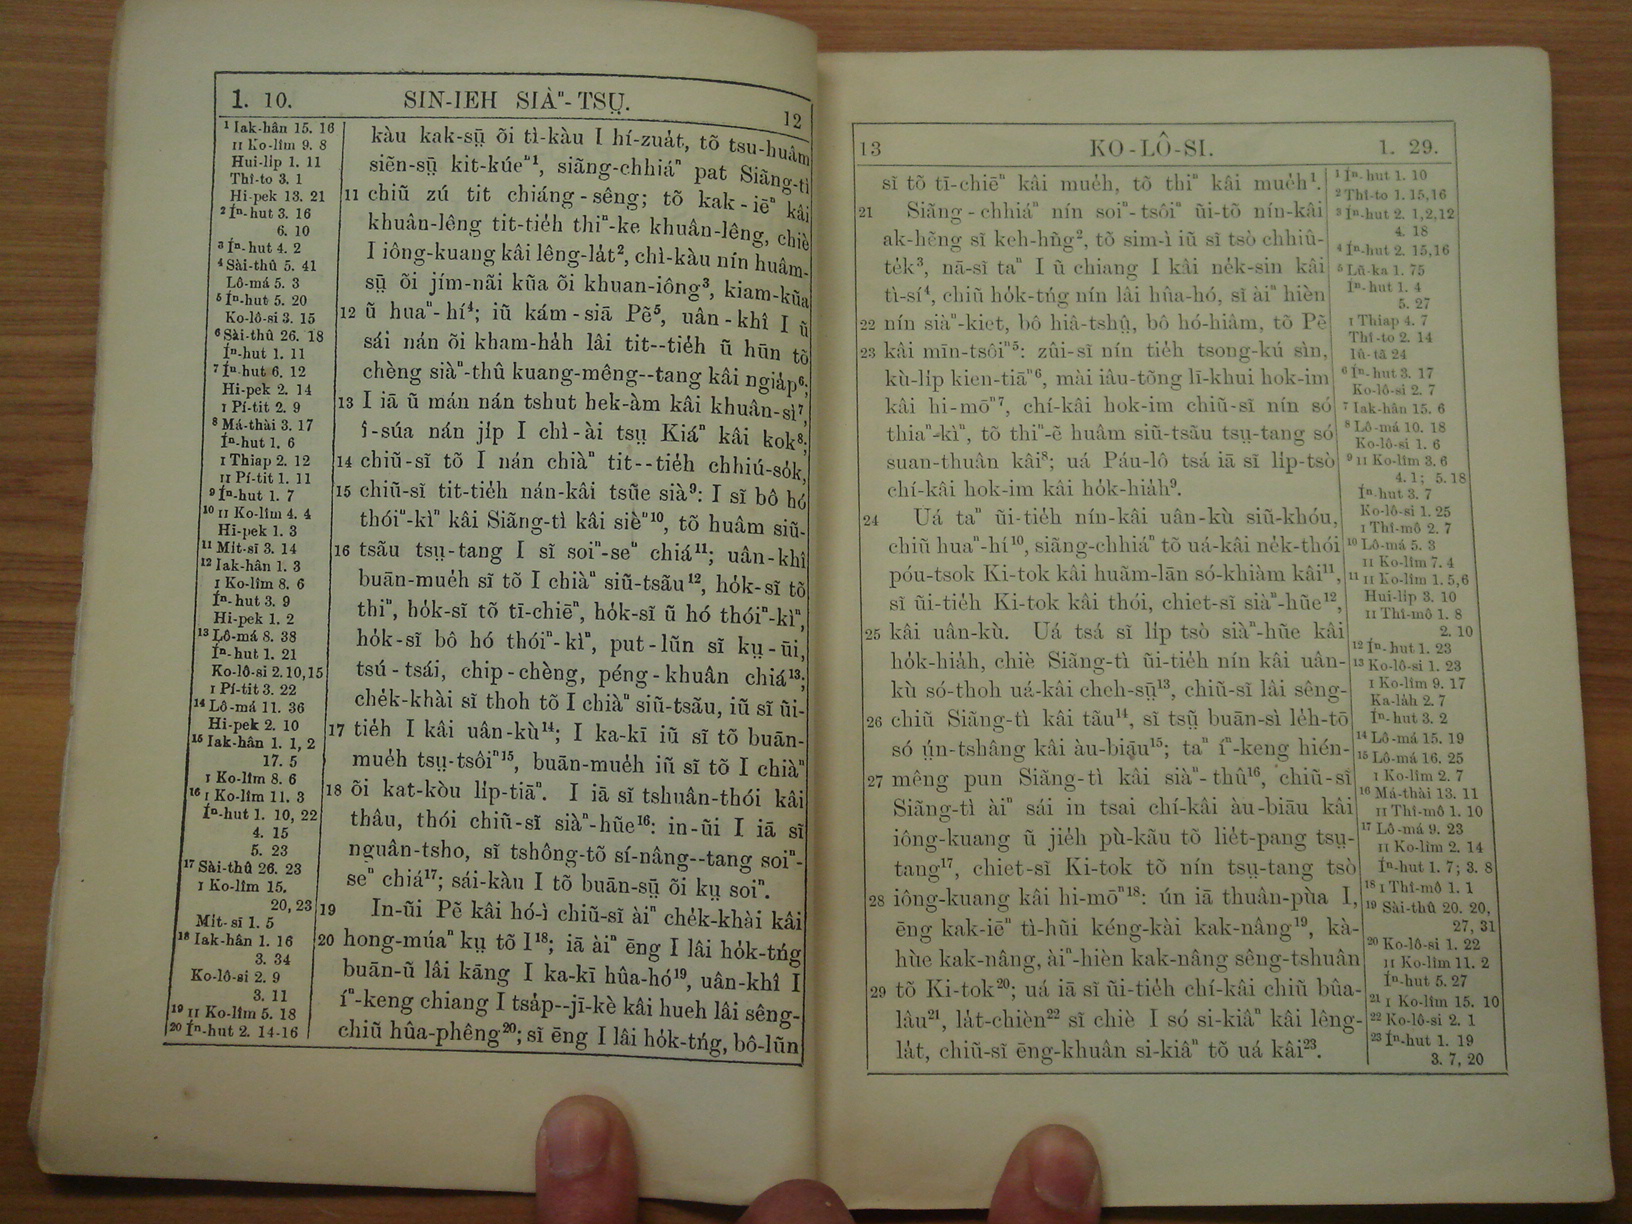 1. 10. SIN-IEH SIÀⁿ-TSṲ. 12
¹ Iak-hân 15. 16
II Ko-lîm 9. 8
Hui-li̍p 1. 11
Thî-to 3. 1
Hi-pek 13. 21
² Íⁿ-hut 3. 16
6. 10
³ Íⁿ-hut 4. 2
⁴ Sài-thû 5. 41
Lô-má 5. 3
⁵ Íⁿ-hut 5. 20
Ko-lô-si 3. 15
⁶ Sài-thû 26. 18
Íⁿ-hut 1. 11
⁷ Íⁿ-hut 6. 12
Hi-pek 2. 14
I Pí-tit 2. 9
⁸ Má-thài 3. 17
Íⁿ-hut 1. 6
I Thiap 2. 12
II Pí-tit 1. 11
⁹ Íⁿ-hut 1. 7
¹⁰ II Ko-lîm 4. 4
Hi-pek 1. 3
¹¹ Mi̍t-sī 3. 14
¹² Iak-hân 1. 3
I Ko-lîm 8. 6
Íⁿ-hut 3. 9
Hi-pek 1. 2
¹³ Lô-má 8. 38
Íⁿ-hut 1. 21
Ko-lô-si 2. 10, 15
I Pí-tit 3. 22
¹⁴ Lô-má 11. 36
Hi-pek 2. 10
¹⁵ Iak-hân 1. 1, 2
17. 5
I Ko-lîm 8. 6
¹⁶ I Ko-lîm 11. 3
Íⁿ-hut 1. 10, 22
4. 15
5. 23
¹⁷ Sài-thû 26. 23
I Ko-lîm 15.
20, 23
Mi̍t-sī 1. 5
¹⁸ Iak-hân 1. 16
3. 34
Ko-lô-si 2. 9
3. 11
¹⁹ II Ko-lîm 5. 18
²⁰ Íⁿ-hut 2. 14-16
kàu kak-sṳ̄ õi tì-kàu I hí-zua̍t, tõ tsu-huâm
siẽn-sṳ̄ kit-kúeⁿ¹, siãng-chhiáⁿ pat Siãng-tì
11 chiũ zú tit chiáng-sêng; tõ kak-iēⁿ kâi
khuân-lêng tit-tie̍h thiⁿ-ke khuân-lêng, chiè
I iông-kuang kâi lêng-la̍t², chì-kàu nín huâm-
sṳ̄ õi jím-nãi kũa õi khuan-iông³, kiam-kũa
12 ũ huaⁿ-hí⁴; iũ kám-siā Pẽ⁵, uân-khî I ũ
sái nán õi kham-ha̍h lâi tit--tie̍h ũ hūn tõ
chèng siàⁿ-thû kuang-mêng--tang kâi ngia̍p⁶;
13 I iā ũ mán nán tshut hek-àm kâi khuân-sì⁷,
î-súa nán ji̍p I chì-ài tsṳ Kiáⁿ kâi kok⁸;
14 chiũ-sĩ tõ I nán chiàⁿ tit--tie̍h chhiú-so̍k,
15 chiũ-sĩ tit-tie̍h nán-kâi tsũe sià⁹: I sĩ bô hó
thóiⁿ-kìⁿ kâi Siãng-tì kâi siẽⁿ¹⁰, tõ huâm siũ-
16 tsãu tsṳ-tang I sĩ soiⁿ-seⁿ chiá¹¹; uân-khî
buān-mue̍h sĩ tõ I chiàⁿ siũ-tsãu¹², ho̍k-sĩ tõ
thiⁿ, ho̍k-sĩ tõ tī-chiēⁿ, ho̍k-sĩ ũ hó thóiⁿ-kìⁿ,
ho̍k-sĩ bô hó thóiⁿ-kìⁿ, put-lūn sĩ kṳ-ūi,
tsú-tsái, chip-chèng, péng-khuân chiá¹³;
che̍k-khài sĩ thoh tõ I chiàⁿ siũ-tsãu, iũ sĩ ũi-
17 tie̍h I kâi uân-kù¹⁴; I ka-kī iũ sĩ tõ buān-
mue̍h tsṳ-tsôiⁿ¹⁵, buān-mue̍h iũ sĩ tõ I chiàⁿ
18 õi kat-kòu li̍p-tiāⁿ. I iā sĩ tshuân-thói kâi
thâu, thói chiũ-sĩ siàⁿ-hũe¹⁶: in-ũi I iā sĩ
nguân-tsho, sĩ tshông-tõ sí-nâng--tang soiⁿ-
seⁿ chiá¹⁷; sái-kàu I tõ buān-sṳ̄ õi kṳ soiⁿ.
19 In-ũi Pẽ kâi hó-ì chiũ-sĩ àiⁿ che̍k-khài kâi
20 hong-múaⁿ kṳ tõ I¹⁸; iā àiⁿ ēng I lâi ho̍k-tńg
buān-ũ lâi kāng I ka-kī hûa-hó¹⁹, uân-khî I
íⁿ-keng chiang I tsa̍p--jī-kè kâi hueh lâi sêng-
chiũ hûa-phêng²⁰; sĩ ēng I lâi ho̍k-tńg, bô-lūn
13 KO-LÔ-SI. 1. 29.
sĩ tõ tī-chiēⁿ kâi mue̍h, tõ thiⁿ kâi mue̍h¹.
21 Siãng-chhiáⁿ nín soiⁿ-tsôiⁿ ũi-tõ nín-kâi
ak-hẽng sĩ keh-hn̄g², tõ sim-ì iũ sĩ tsò chhiû-
te̍k³, nā-sĩ taⁿ I ũ chiang I kâi ne̍k-sin kâi
tì-sí⁴, chiũ ho̍k-tńg nín lâi hûa-hó, sĩ àiⁿ hièn
22 nín siàⁿ-kiet, bô hiâ-tshṳ̂, bô hó-hiâm, tõ Pẽ
23 kâi mīn-tsôiⁿ⁵: zûi-sĩ nín tie̍h tsong-kú sìn,
kù-li̍p kien-tiāⁿ⁶, mài iâu-tõng lī-khui hok-im
kâi hi-mōⁿ⁷, chí-kâi hok-im chiũ-sĩ nín só
thiaⁿ-kìⁿ, tõ thiⁿ-ẽ huâm siũ-tsãu tsṳ-tang só
suan-thuân kâi⁸; uá Páu-lô tsá iā sĩ li̍p-tsò
chí-kâi hok-im kâi ho̍k-hia̍h⁹.
24 Uá taⁿ ũi-tie̍h nín-kâi uân-kù siũ-khóu,
chiũ huaⁿ-hí¹⁰, siãng-chhiáⁿ tõ uá-kâi ne̍k-thói
póu-tsok Ki-tok kâi huãm-lān só-khiàm kâi¹¹,
sĩ ũi-tie̍h Ki-tok kâi thói, chiet-sĩ siàⁿ-hũe¹²,
25 kâi uân-kù. Uá tsá sĩ li̍p tsò siàⁿ-hũe kâi
ho̍k-hia̍h, chiè Siãng-tì ũi-tie̍h nín kâi uân-
kù só-thoh uá-kâi cheh-sṳ̄¹³, chiũ-sĩ lâi sêng-
26 chiũ Siãng-tì kâi tãu¹⁴, sĩ tsṳ̃ buān-sì le̍h-tō
só ṳ́n-tshâng kâi àu-biāu¹⁵; taⁿ íⁿ-keng hién-
27 mêng pun Siãng-tì kâi siàⁿ-thû¹⁶, chiũ-sĩ
Siãng-tì àiⁿ sái in tsai chí-kâi àu-biāu kâi
iông-kuang ũ jie̍h pù-kãu tõ lie̍t-pang tsṳ-
tang¹⁷, chiet-sĩ Ki-tok tõ nín tsṳ-tang tsò
28 iông-kuang kâi hi-mōⁿ¹⁸: ún iā thuân-pùa I,
ēng kak-iēⁿ tì-hũi kéng-kài kak-nâng¹⁹, kà-
hùe kak-nâng, àiⁿ-hièn kak-nâng sêng-tshuân
29 tõ Ki-tok²⁰; uá iā sĩ ũi-tie̍h chí-kâi chiũ bûa-
lâu²¹, la̍t-chièn²² sĩ chiè I só si-kiâⁿ kâi lêng-
la̍t, chiũ-sĩ ēng-khuân si-kiâⁿ tõ uá kâi²³.
¹ Íⁿ-hut 1. 10
² Thî-to 1. 15, 16
³ Íⁿ-hut 2. 1, 2, 12
4. 18
⁴ Íⁿ-hut 2. 15, 16
⁵ Lū-ka 1. 75
Íⁿ-hut 1. 4
5. 27
I Thiap 4. 7
Thî-to 2. 14
Iû-tã 24
⁶ Íⁿ-hut 3. 17
Ko-lô-si 2. 7
⁷ Iak-hân 15. 6
⁸ Lô-má 10. 18
Ko-lô-si 1. 6
⁹ II Ko-lîm 3. 6
4. 1; 5. 18
Íⁿ-hut 3. 7
Ko-lô-si 1. 25
I Thî-mô 2. 7
¹⁰ Lô-má 5. 3
II Ko-lîm 7. 4
¹¹ II Ko-lîm 1. 5, 6
Hui-li̍p 3. 10
II Thî-mô 1. 8
2. 10
¹² Íⁿ-hut 1. 23
¹³ Ko-lô-si 1. 23
I Ko-lîm 9. 17
Ka-la̍h 2. 7
Íⁿ-hut 3. 2
¹⁴ Lô-má 15. 19
¹⁵ Lô-má 16. 25
I Ko-lîm 2. 7
¹⁶ Má-thài 13. 11
II Thî-mô 1. 10
¹⁷ Lô-má 9. 23
II Ko-lîm 2. 14
Íⁿ-hut 1. 7; 3. 8
¹⁸ I Thî-mô 1. 1
¹⁹ Sài-thû 20. 20,
27, 31
²⁰ Ko-lô-si 1. 22
II Ko-lîm 11. 2
Íⁿ-hut 5. 27
²¹ I Ko-lîm 15. 10
²² Ko-lô-si 2. 1
²³ Íⁿ-hut 1. 19
3. 7, 20